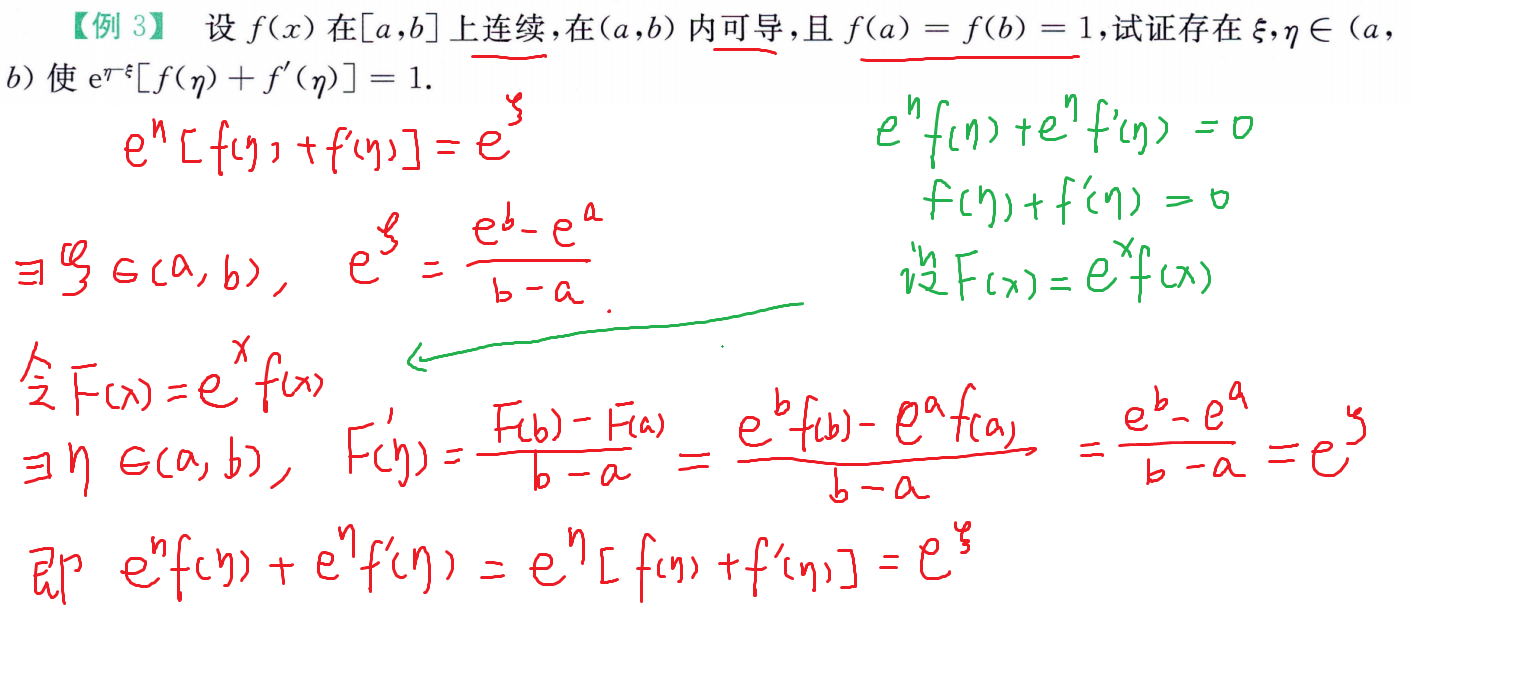 【例 3】 设 f(x) 在[a,b]上连续,在(a,b) 内可导,且 f(a) = f(b) = 1,试证存在 ξ,η ∈ (a,
b) 使 e^{η-ξ}[f(η) + f′(η)] = 1.
e^η[f(η)+f′(η)] = e^ξ
e^η f(η) + e^η f′(η) = 0
f(η) + f′(η) = 0
设 F(x) = e^x f(x)
∃ξ∈(a,b), e^ξ = (e^b - e^a)/(b-a).
令 F(x) = e^x f(x)
∃η∈(a,b), F′(η) = (F(b) - F(a))/(b-a) = (e^b f(b) - e^a f(a))/(b-a) = (e^b - e^a)/(b-a) = e^ξ
即 e^η f(η) + e^η f′(η) = e^η[f(η) + f′(η)] = e^ξ